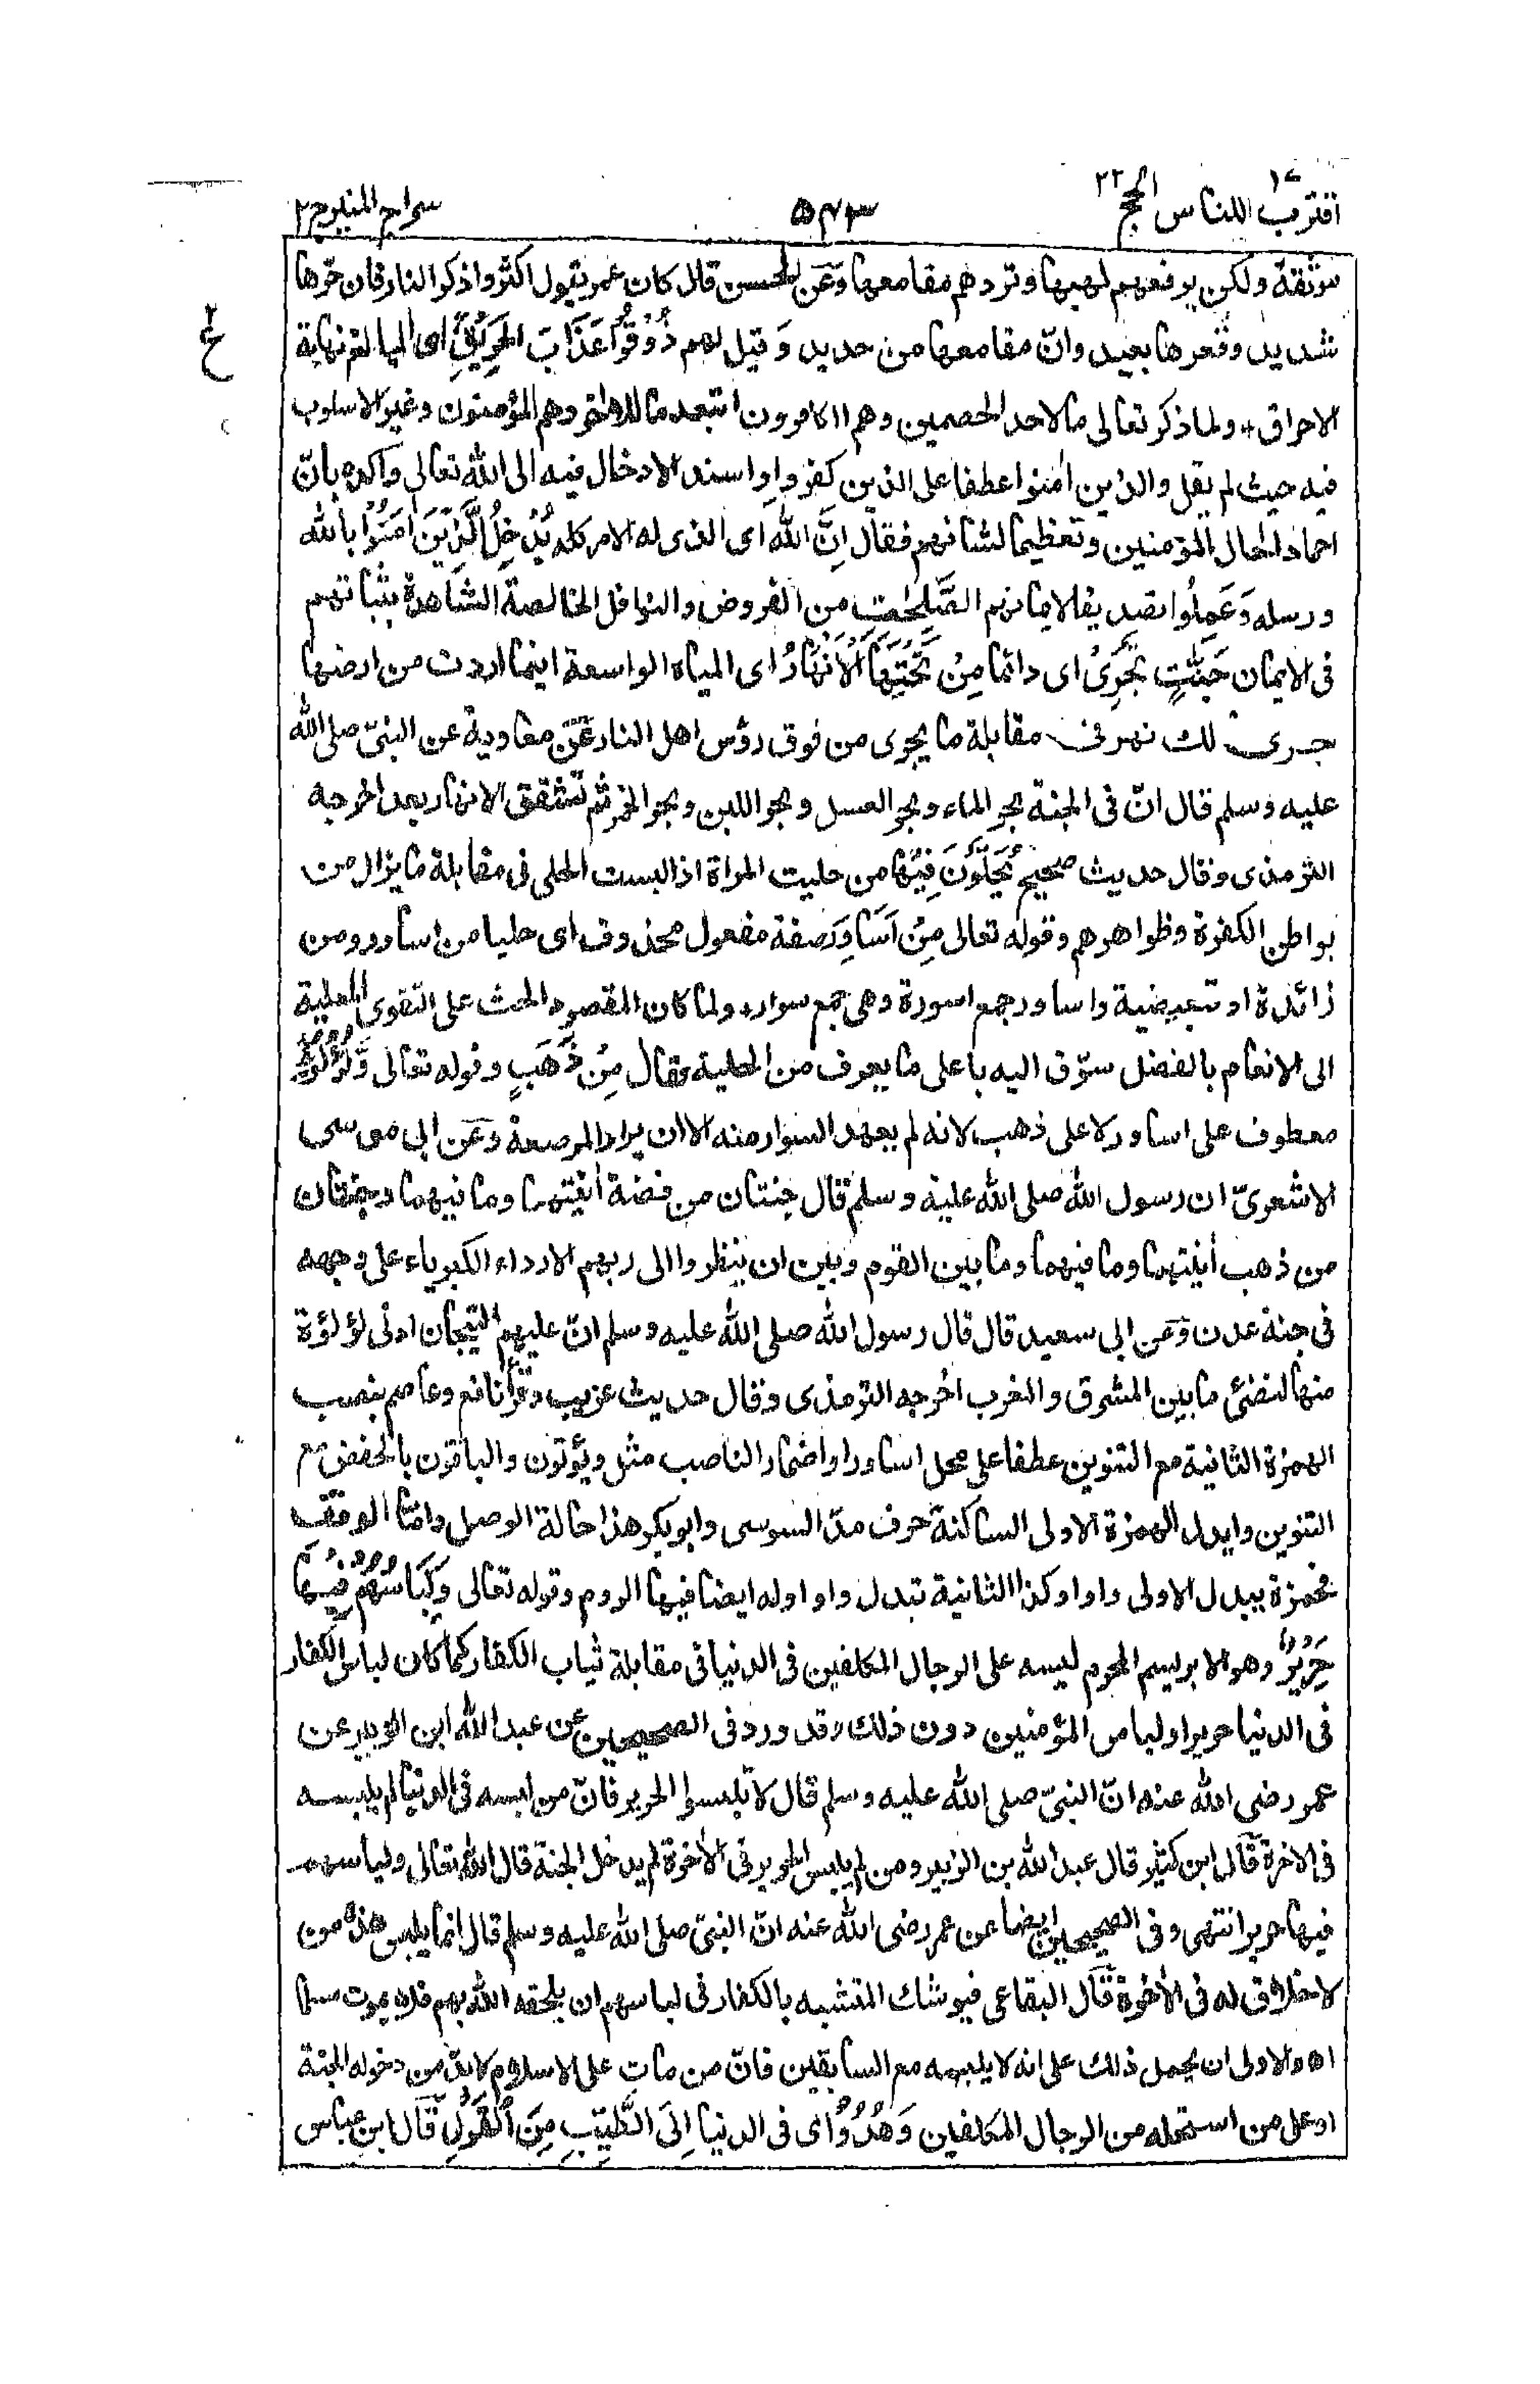 اقترب للناس ١٧ الحج ٢٢
٥٤٣
سراج المنير ج ٢
موثقة ولكن يرفعهم لهبها وتردهم مقامعها وعن الحسن قال كان عمر يقول اكثروا ذكر النار فان حرّها
شديد وقعرها بعيد وانّ مقامعها من حديد وَ قيل لهم ذُوْقُوْا عَذَابَ الْحَرِيْقِ اى البالغ نهاية
الاحراق ٭ ولما ذكر تعالى ما لاحد الخصمين وهم الكافرون اتبعه ما للآخر وهم المؤمنون وغير الاسلوب
فيه حيث لم يقل والذين اٰمنوا عطفا على الذين كفروا واسند الادخال فيه الى الله تعالى واكده بانّ
احمادا لحال المؤمنين وتعظيما لشانهم فقال اِنَّ اللّٰهَ اى الذى له الامر كله يُدْخِلُ الَّذِيْنَ اٰمَنُوْا بالله
ورسله وَعَمِلُوا تصديقا لايمانهم الصّٰلِحٰتِ من الفروض والنوافل الخالصة الشاهدة بثباتهم
فى الايمان جَنّٰتٍ تَجْرِىْ اى دائما مِنْ تَحْتِهَا الْاَنْهٰارُ اى المياه الواسعة اينما اردت من ارضها
جرى لك نهر فى مقابلة ما يجرى من فوق رؤس اهل النار عن معاوية عن النبىّ صلى الله
عليه وسلم قال انّ فى الجنة بحر الماء وبحر العسل وبحر اللبن وبحر الخمر ثم تشقق الانهار بعد اخرجه
الترمذى وقال حديث صحيح يُحَلَّوْنَ فِيْهَا من حليت المراة اذا لبست الحلى فى مقابلة ما يزال من
بواطن الكفرة وظواهرهم وقوله تعالى مِنْ اَسَاوِرَ صفة مفعول محذوف اى حليا من اساور ومن
زائدة او تبعيضية واساور جمع اسورة وهى جمع سوار ٭ ولما كان المقصود الحث على التقوى المعلية
الى الانعام بالفضل سوّق اليه باعلى ما يعرف من الحلية فقال مِنْ ذَهَبٍ وقوله تعالى وَّلُؤْلُؤًا
معطوف على اساور لا على ذهب لانه لم يعهد السوار منه الا ان يراد المرصعة وعن ابى موسى
الاشعرىّ ان رسول الله صلى الله عليه وسلم قال جنتان من فضة اٰنيتهما وما فيهما وجنتان
من ذهب اٰنيتهما وما فيهما وما بين القوم وبين ان ينظروا الى ربهم الا رداء الكبرياء على وجهه
فى جنة عدن وعن ابى سعيد قال قال رسول الله صلى الله عليه وسلم انّ عليهم التيجان ادنى لؤلؤة
منها لتضئ ما بين المشرق والمغرب اخرجه الترمذى وقال حديث غريب وقرأ نافع وعاصم بنصب
الهمزة الثانية مع التنوين عطفا على محل اساور او اضمار الناصب مثل ويؤتون والباقون بالخفض مع
التنوين وابدل الهمزة الاولى الساكنة حرف مدّ السوسى وابو بكر هذا حالة الوصل وامّا الوقف
فحمزة يبدل الاولى واوا وكذا الثانية تبدل واوا وله ايضا فيها الروم وقوله تعالى وَلِبَاسُهُمْ فِيْهَا
حَرِيْرٌ وهو الابريسم المحرم لبسه على الرجال المكلفين فى الدنيا فى مقابلة ثياب الكفار كما كان لباس الكفار
فى الدنيا حريرا ولباس المؤمنين دون ذلك وقد ورد فى الصحيحين عن عبد الله ابن الزبير عن
عمر رضى الله عنه انّ النبىّ صلى الله عليه وسلم قال لا تلبسوا الحرير فانّ من لبسه فى الدنيا لم يلبسه
فى الاٰخرة قال ابن كثير قال عبد الله بن الزبير ومن لم يلبس الحرير فى الاٰخرة لم يدخل الجنة قال الله تعالى ولباسهم
فيها حرير انتهى وفى الصحيحين ايضا عن عمر رضى الله عنه انّ النبىّ صلى الله عليه وسلم قال انما يلبس هذه من
لا خلاق له فى الاٰخرة قال البقاعى فيوشك المتشبه بالكفار فى لباسهم ان يلحقه الله بهم فلا يموت مسلما
اه والاولى ان يحمل ذلك على انه لا يلبسه مع السابقين فانّ من مات على الاسلام لا بدّ من دخوله الجنة
او على من استحله من الرجال المكلفين وَهُدُوْٓا اى فى الدنيا اِلَى الطَّيِّبِ مِنَ الْقَوْلِ قال ابن عباس
ع